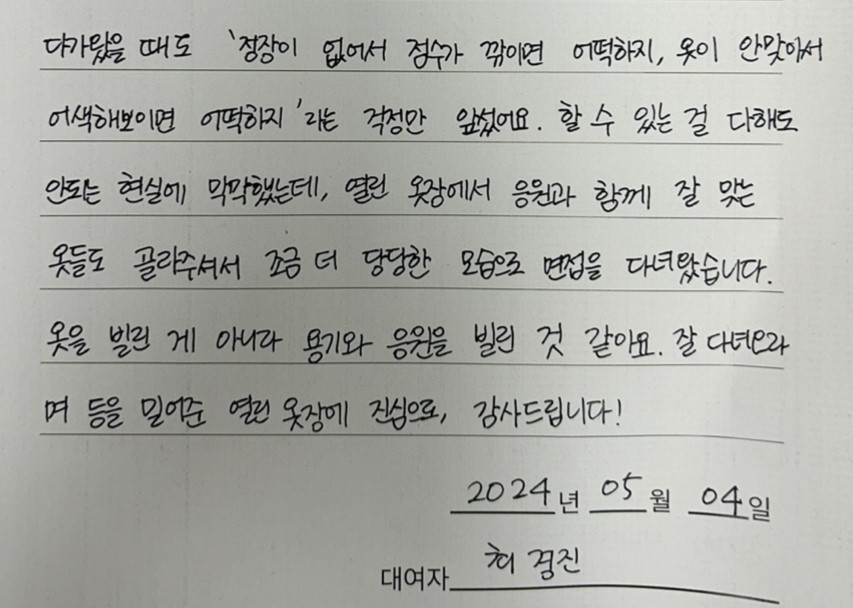 다가왔을 때도 '정장이 없어서 점수가 깎이면 어떡하지, 옷이 안맞아서
어색해보이면 어떡하지'라는 걱정만 앞섰어요. 할 수 있는 걸 다해도
안되는 현실에 막막했는데, 열린 옷장에서 응원과 함께 잘 맞는
옷들도 골라주셔서 조금 더 당당한 모습으로 면접을 다녀왔습니다.
옷을 빌린 게 아니라 용기와 응원을 빌린 것 같아요. 잘 다녀오라
며 등을 밀어준 열린 옷장에 진심으로, 감사드립니다!
2024년 05월 04일
대여자 최경진